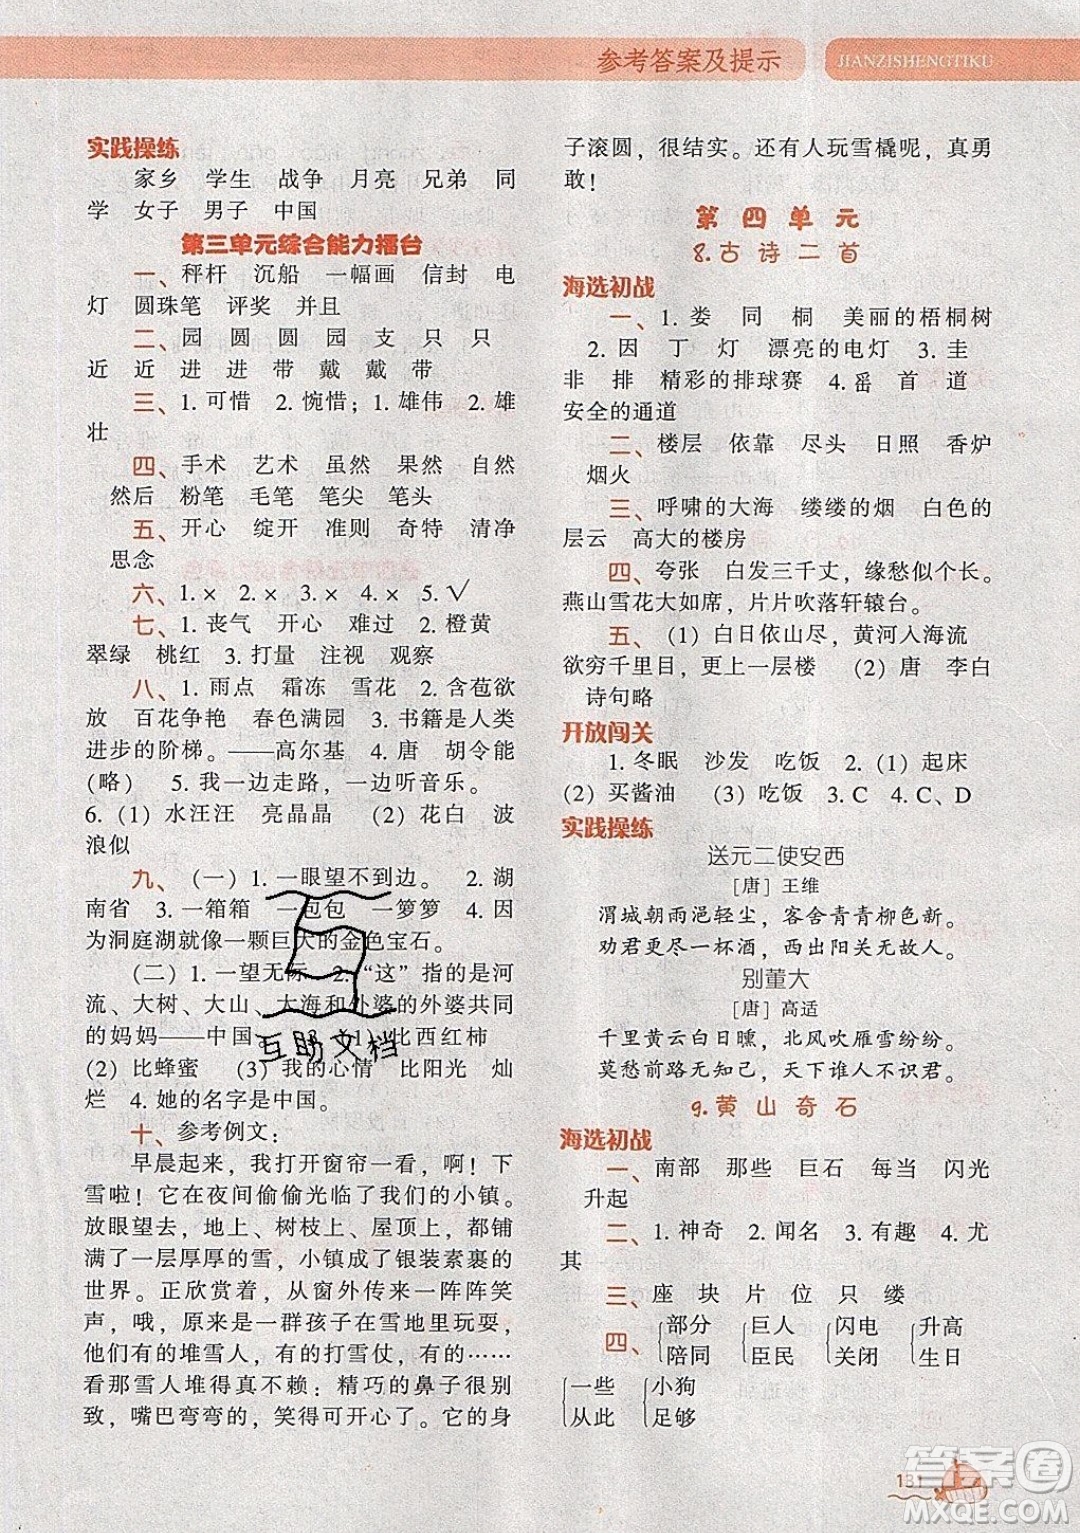 参考答案及提示
JIANZISHENGTIKU
实践操练
家乡 学生 战争 月亮 兄弟 同
学 女子 男子 中国
第三单元综合能力擂台
一、秤杆 沉船 一幅画 信封 电
灯 圆珠笔 评奖 并且
二、园 圆 圆 园 支 只 只
近 近 进 进 带 戴 戴 带
三、1. 可惜 2. 惋惜；1. 雄伟 2. 雄
壮
四、手术 艺术 虽然 果然 自然
然后 粉笔 毛笔 笔尖 笔头
五、开心 绽开 准则 奇特 清净
思念
六、1. × 2. × 3. × 4. × 5. √
七、1. 丧气 开心 难过 2. 橙黄
翠绿 桃红 3. 打量 注视 观察
八、1. 雨点 霜冻 雪花 2. 含苞欲
放 百花争艳 春色满园 3. 书籍是人类
进步的阶梯。——高尔基 4. 唐 胡令能
(略) 5. 我一边走路，一边听音乐。
6. (1) 水汪汪 亮晶晶 (2) 花白 波
浪似
九、(一) 1. 一眼望不到边。 2. 湖
南省 3. 一箱箱 一包包 一箩箩 4. 因
为洞庭湖就像一颗巨大的金色宝石。
(二) 1. 一望无际 2. “这”指的是河
流、大树、大山、大海和外婆的外婆共同
的妈妈——中国。 3. (1) 比西红柿
(2) 比蜂蜜 (3) 我的心情 比阳光 灿
烂 4. 她的名字是中国。
十、参考例文：
早晨起来，我打开窗帘一看，啊！下
雪啦！它在夜间偷偷光临了我们的小镇。
放眼望去，地上、树枝上、屋顶上，都铺
了一层厚厚的雪，小镇成了银装素裹的
世界。正欣赏着，从窗外传来一阵阵笑
声，哦，原来是一群孩子在雪地里玩耍，
他们有的堆雪人，有的打雪仗，有的……
看那雪人堆得真不赖：精巧的鼻子很别
致，嘴巴弯弯的，笑得可开心了。它的身
子滚圆，很结实。还有人玩雪橇呢，真勇
敢！
第四单元
8. 古诗二首
海选初战
一、1. 娄 同 桐 美丽的梧桐树
2. 因 丁 灯 漂亮的电灯 3. 圭
非 排 精彩的排球赛 4. 番 首 道
安全的通道
二、楼层 依靠 尽头 日照 香炉
烟火
三、呼啸的大海 缕缕的烟 白色的
层云 高大的楼房
四、夸张 白发三千丈，缘愁似个长。
燕山雪花大如席，片片吹落轩辕台。
五、(1) 白日依山尽，黄河入海流
欲穷千里目，更上一层楼 (2) 唐 李白
诗句略
开放闯关
1. 冬眠 沙发 吃饭 2. (1) 起床
(2) 买酱油 (3) 吃饭 3. C 4. C、D
实践操练
送元二使安西
[唐] 王维
渭城朝雨浥轻尘，客舍青青柳色新。
劝君更尽一杯酒，西出阳关无故人。
别董大
[唐] 高适
千里黄云白日曛，北风吹雁雪纷纷。
莫愁前路无知己，天下谁人不识君。
9. 黄山奇石
海选初战
一、南部 那些 巨石 每当 闪光
升起
二、1. 神奇 2. 闻名 3. 有趣 4. 尤
其
三、座 块 片 位 只 缕
四、部分 巨人 闪电 升高
陪同 臣民 关闭 生日
一些 小狗
从此 足够
互助文档
131
答案圈
MXQE.COM